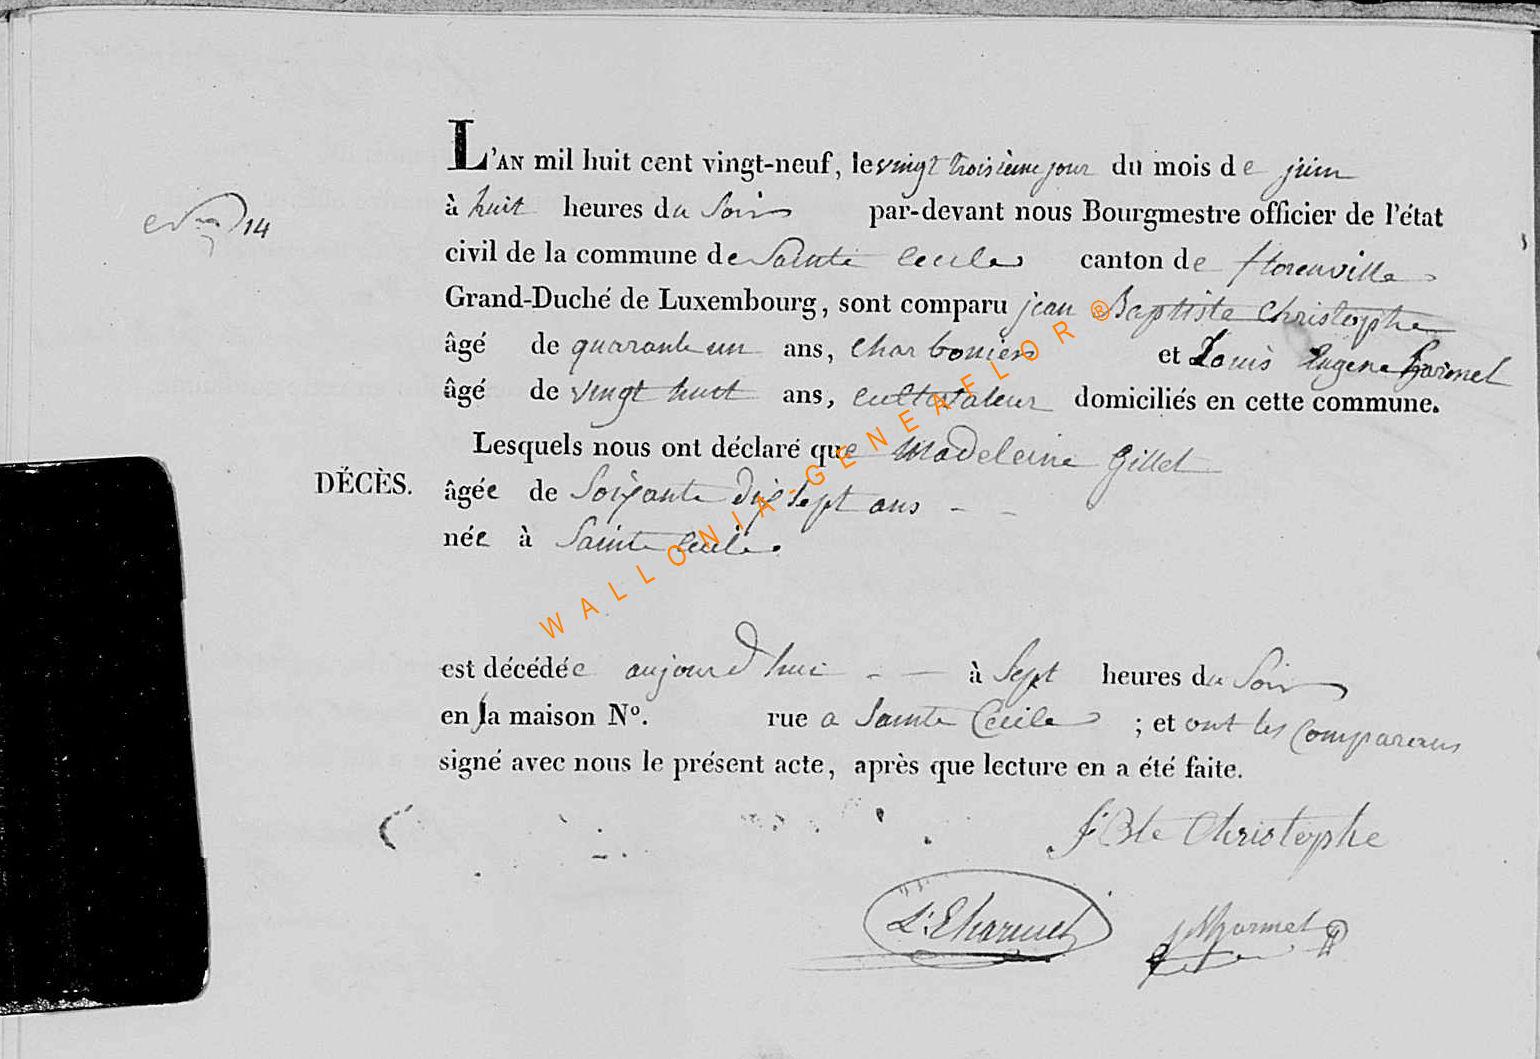 L'AN mil huit cent vingt-neuf, le vingt troisième jour du mois de juin
à huit heures du Soir par-devant nous Bourgmestre officier de l'état
14
civil de la commune de Sainte Cecile canton de florenville
Grand-Duché de Luxembourg, sont comparu jean Baptiste Christophe
âgé de quarante un ans, charbonier et Louis Eugene harmel
âgé de vingt huit ans, cultivateur domiciliés en cette commune.
Lesquels nous ont déclaré que Madeleine Gillet
DÉCÈS.
âgée de Soixante dix sept ans
née à Sainte Cecile.
WALLONIA-GENEAFLOR®
est décédée aujourd'hui à Sept heures du Soir
en la maison N°. rue a Sainte Cecile ; et ont les comparans
signé avec nous le présent acte, après que lecture en a été faite.
J Bte Christophe
L. E harmel
harmel